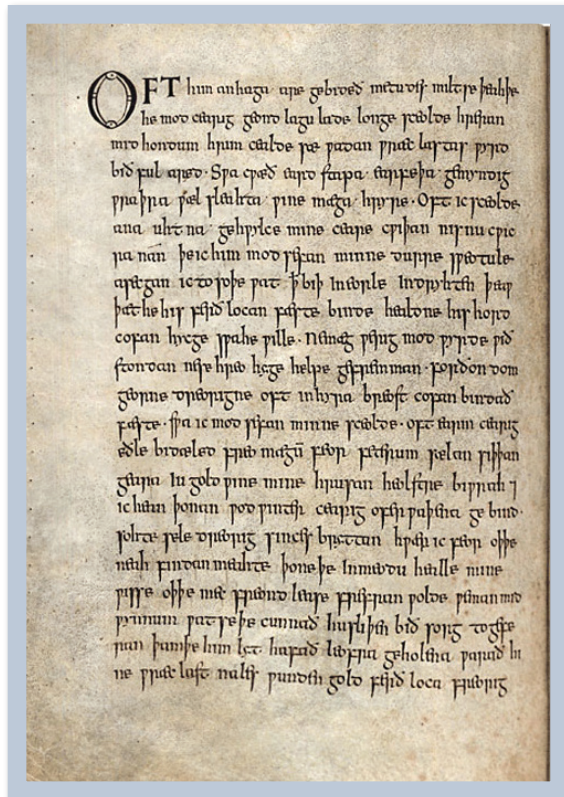 OFT him anhaga are gebideð metudes miltse þeahþe
he mod cearig geond lagu lade longe sceolde hreran
mid hondum hrim cealde sæ ƿadan ƿræc lastas ƿyrd
bið ful aræd · Sƿa cƿæð eard stapa earfeþa gemyndig
ƿraþra ƿæl sleahta ƿine mæga hryre · Oft ic sceolde
ana uhtna gehƿylce mine ceare cƿiþan nis nu cƿic
ra nan þe ic him mod sefan minne durre sƿeotule
asecgan ic to soþe ƿat ꝥ biþ in eorle indryhten þeaƿ
þæt he his ferð locan fæste binde healdne his hord
cofan hycge sƿa he ƿille · Ne mæg ƿerig mod ƿyrde ƿið
stondan ne se hreo hyge helpe gefremman · forðon dom
georne dreorigne oft in hyra breost cofan bindað
fæste · sƿa ic mod sefan minne sceolde · oft earm cearig
eðle bidæled freo mægū feor feterum sælan siþþan
geara iu gold ƿine mine hrusan heolstre biƿrah ⁊
ic hean þonan ƿod ƿinter cearig ofer ƿaþena ge bind ·
sohte sele dreorig sinces bryttan hƿær ic feor oþþe
neah findan meahte þone þe in meodu healle mine
ƿisse oþþe mec freond lease frefran ƿolde ƿeman mid
ƿynnum ƿat se þe cunnað hu sliþen bið sorg to gefe
ran þam þe him lyt hafað leofra geholena ƿarað hi
ne ƿræc last nales ƿunden gold ferð loca freorig